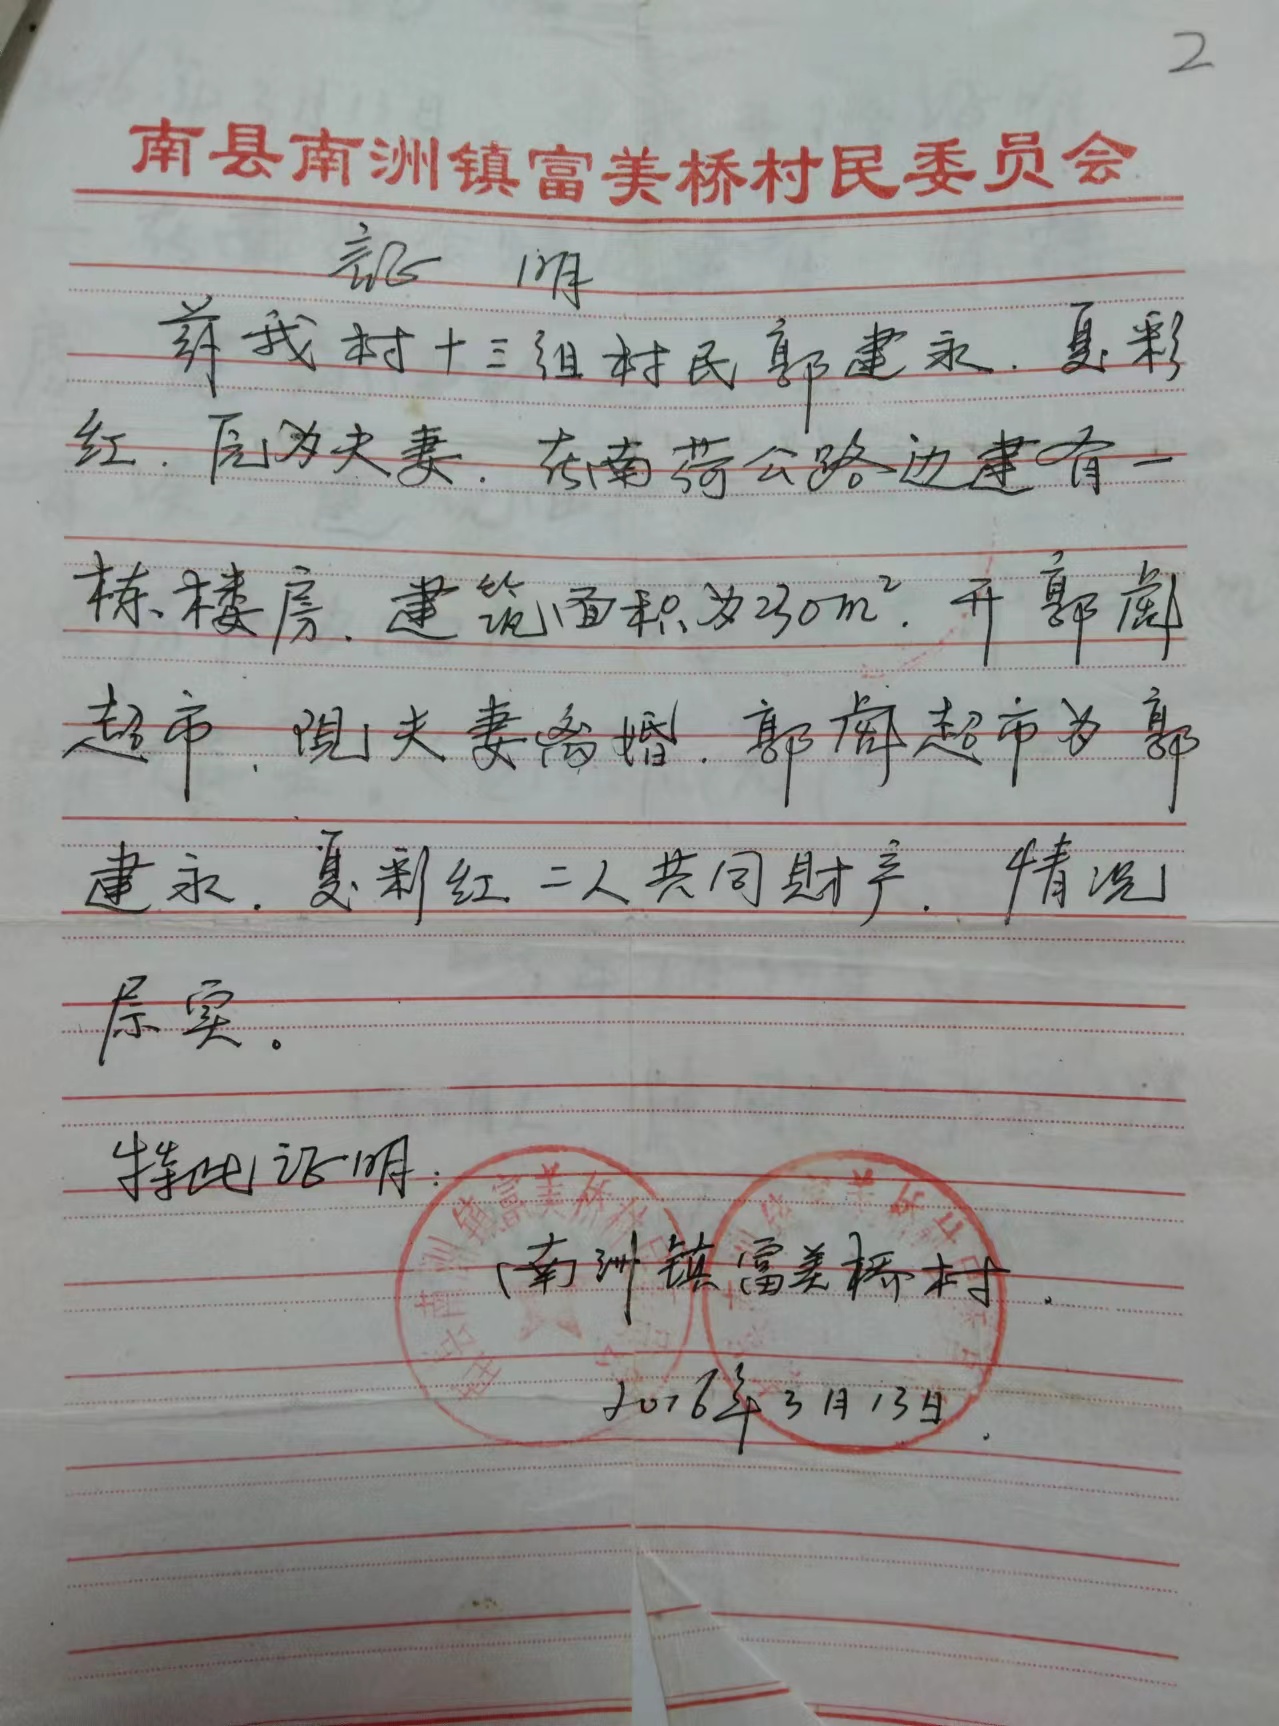 2
南县南洲镇富美桥村民委员会
证 明
兹我村十三组村民郭建永.夏彩
红.原为夫妻.在南荷公路边建有一
栋楼房.建筑面积为230m².开郭虎
超市.现夫妻离婚.郭虎超市为郭
建永.夏彩红二人共同财产.情况
属实。
特此证明:
南洲镇富美桥村.
2016年3月13日.